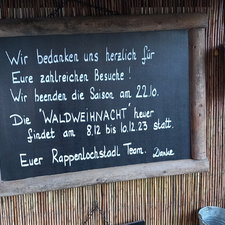 Wir bedanken uns herzlich für
Eure zahlreichen Besuche!
Wir beenden die Saison am 22.10.
Die "WALDWEIHNACHT" heuer
findet am 8.12 bis 10.12.23 statt.
Euer Rappenlochstadl Team. Danke